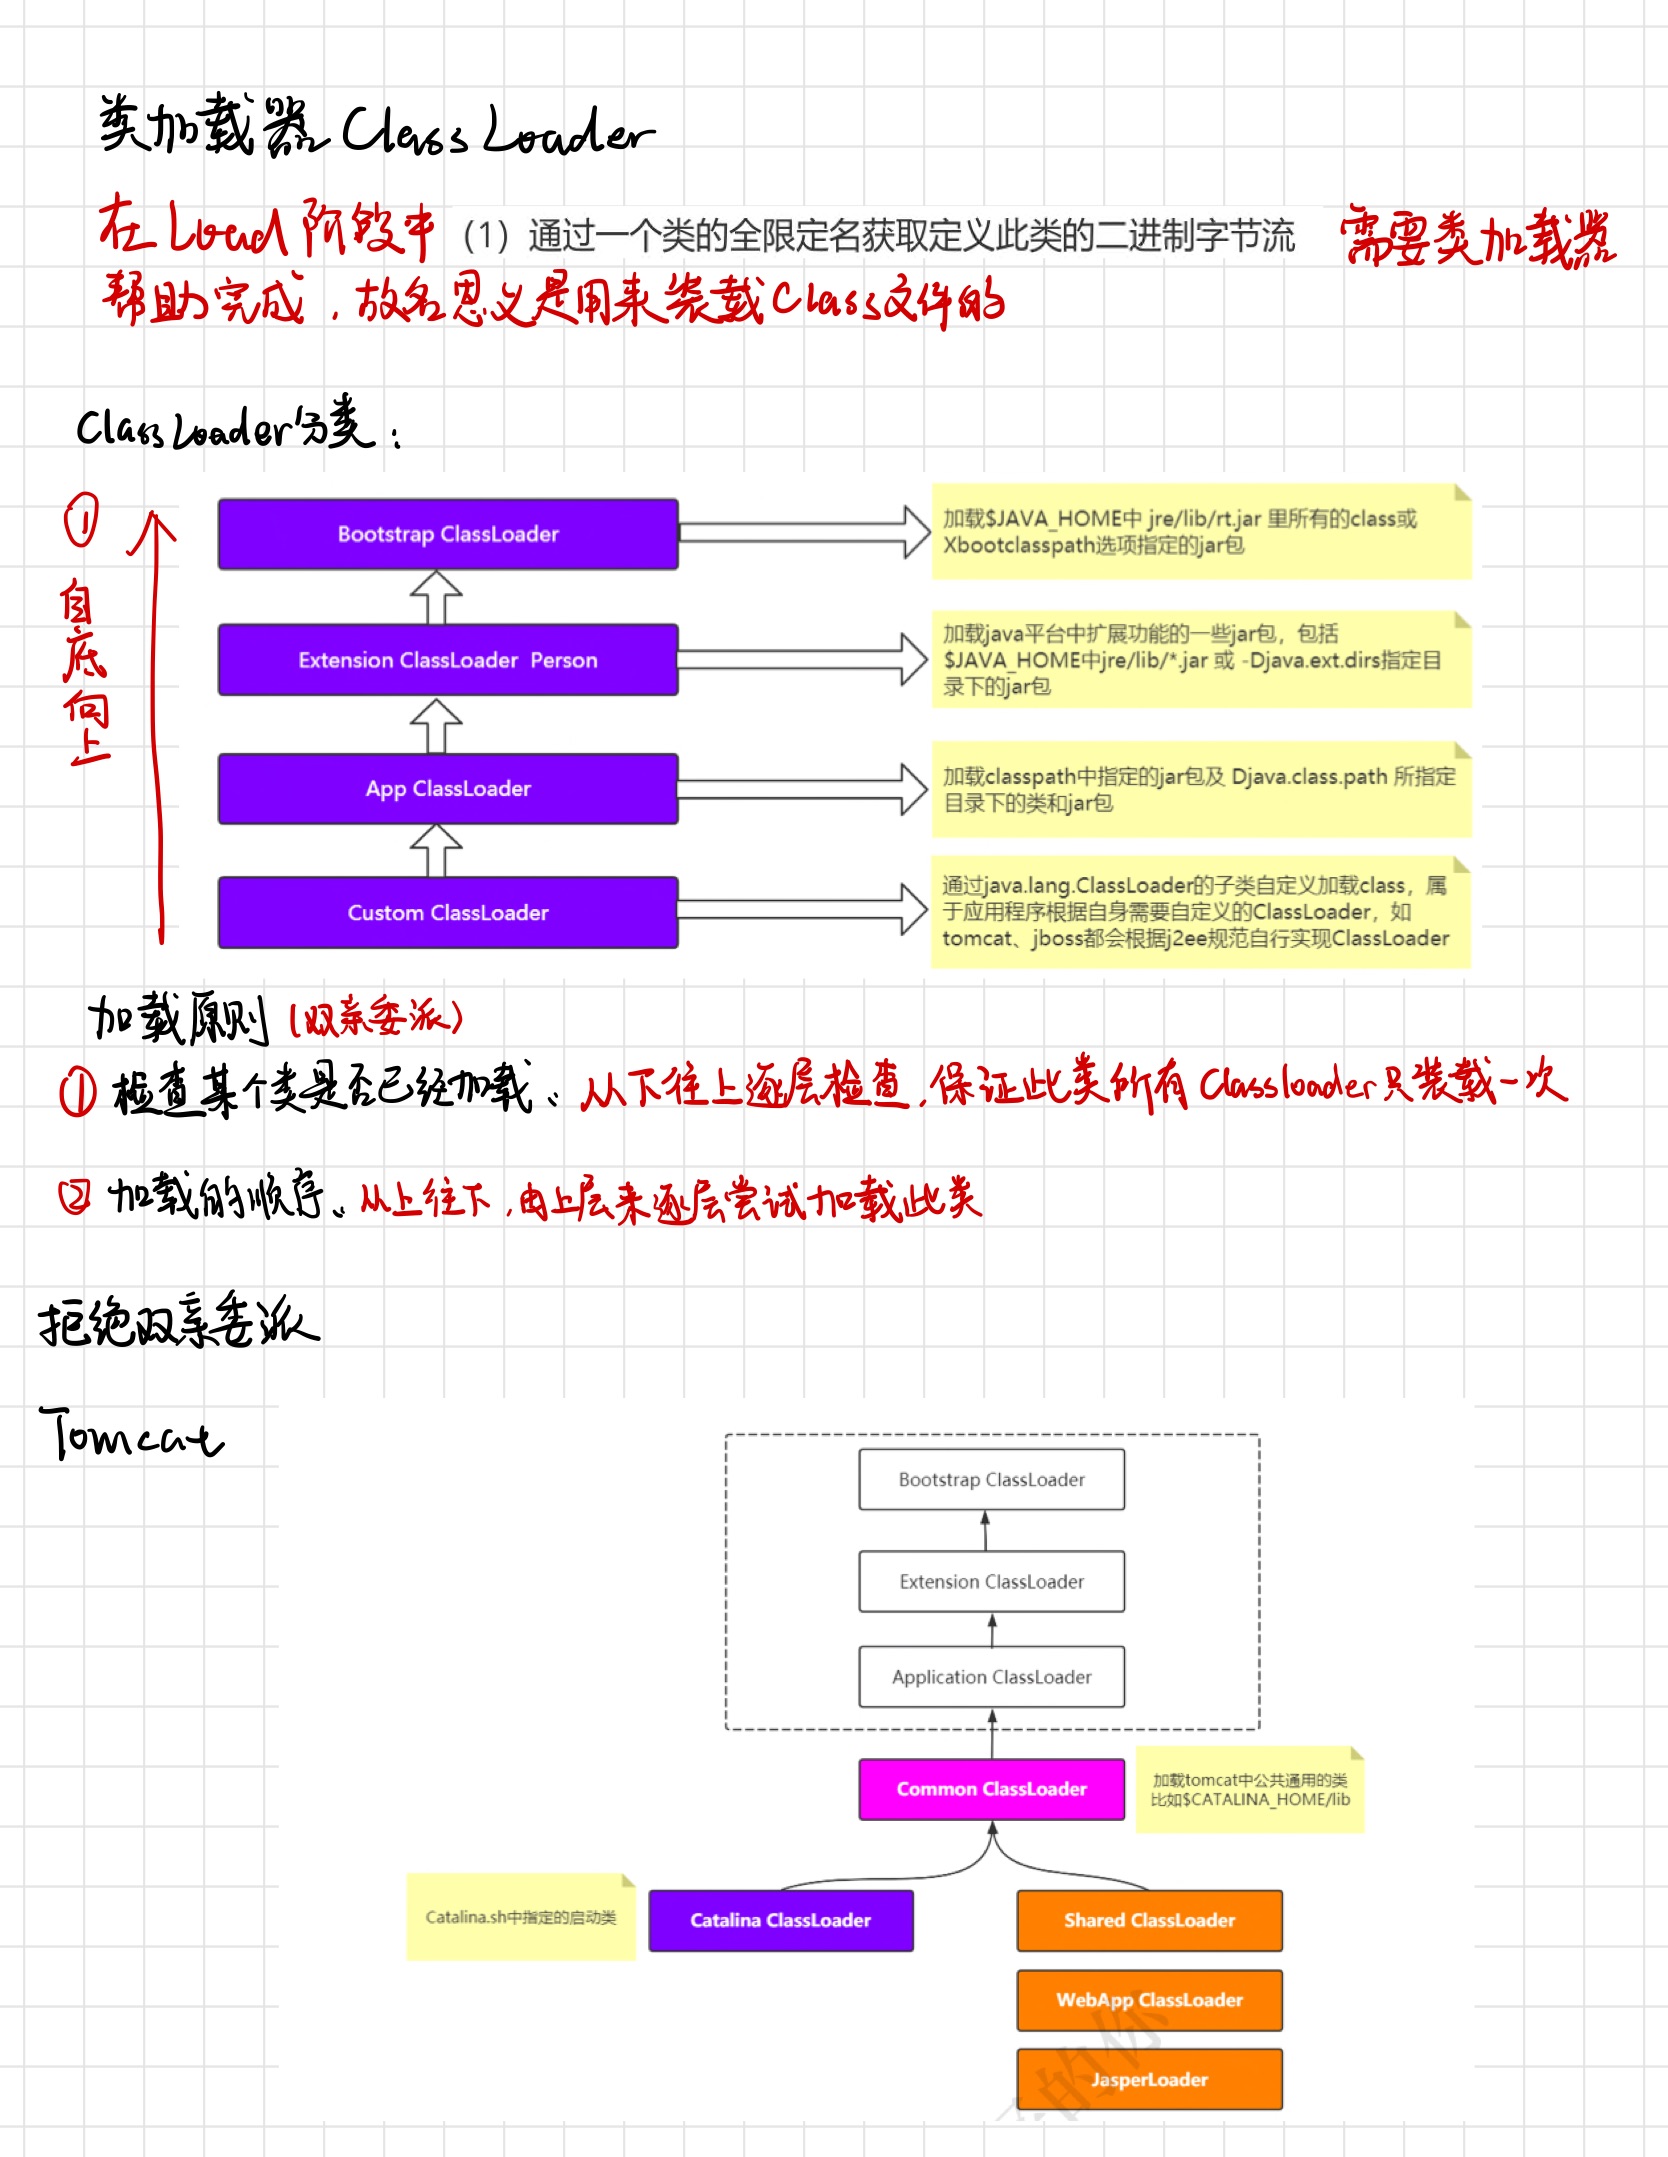 类加载器 ClassLoader
在Load阶段中 （1）通过一个类的全限定名获取定义此类的二进制字节流 需要类加载器
帮助完成，故名思义是用来装载Class文件的
ClassLoader分类：
① 自底向上
Bootstrap ClassLoader
加载$JAVA_HOME中 jre/lib/rt.jar 里所有的class或
Xbootclasspath选项指定的jar包
Extension ClassLoader Person
加载java平台中扩展功能的一些jar包，包括
$JAVA_HOME中jre/lib/*.jar 或 -Djava.ext.dirs指定目
录下的jar包
App ClassLoader
加载classpath中指定的jar包及 Djava.class.path 所指定
目录下的类和jar包
Custom ClassLoader
通过java.lang.ClassLoader的子类自定义加载class，属
于应用程序根据自身需要自定义的ClassLoader，如
tomcat、jboss都会根据j2ee规范自行实现ClassLoader
加载原则（双亲委派）
① 检查某个类是否已经加载、从下往上逐层检查，保证此类所有Classloader只装载一次
② 加载的顺序、从上往下，由上层来逐层尝试加载此类
拒绝双亲委派
Tomcat
Bootstrap ClassLoader
Extension ClassLoader
Application ClassLoader
Common ClassLoader
加载tomcat中公共通用的类
比如$CATALINA_HOME/lib
Catalina.sh中指定的启动类
Catalina ClassLoader
Shared ClassLoader
WebApp ClassLoader
JasperLoader
的你